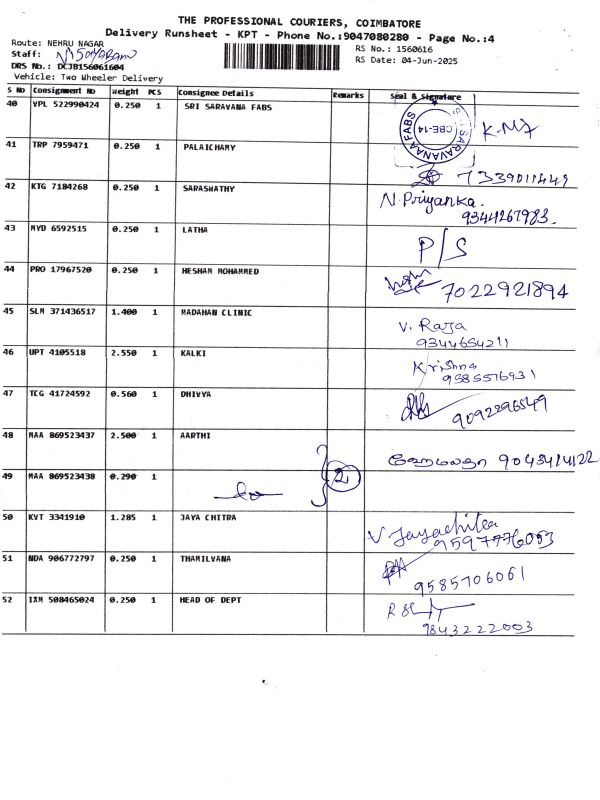 THE PROFESSIONAL COURIERS, COIMBATORE
Delivery Runsheet - KPT - Phone No.:9047080280 - Page No.:4
Route: NEHRU NAGAR
RS No.: 1560616
Staff:
RS Date: 04-Jun-2025
DRS No.: DCJB156061604
Vehicle: Two Wheeler Delivery
S No Consignment No Weight PCS Consignee Details Remarks Seal & Signature
40 VPL 522990424 0.250 1 SRI SARAVANA FABS
SARAVANAA FABS CBE-14
41 TRP 7959471 0.250 1 PALAICHAMY 7339011449
42 KTG 7184268 0.250 1 SARASWATHY N. Priyanka.
9344267983.
43 MYD 6592515 0.250 1 LATHA P/S
44 PRO 17967520 0.250 1 HESHAM MOHAMMED 7022921894
45 SLM 371436517 1.400 1 MADAHAN CLINIC V. Raja
9344654211
46 UPT 4105518 2.550 1 KALKI Krishna
9585576931
47 TCG 41724592 0.560 1 DHIVYA 9092296549
48 MAA 869523437 2.500 1 AARTHI 9043414122
49 MAA 869523438 0.290 1 2
50 KVT 3341910 1.285 1 JAYA CHITRA V Jayachitra
9597776053
51 NDA 906772797 0.250 1 THAMILVANA
9585706061
52 IXM 508465024 0.250 1 HEAD OF DEPT
9843222003